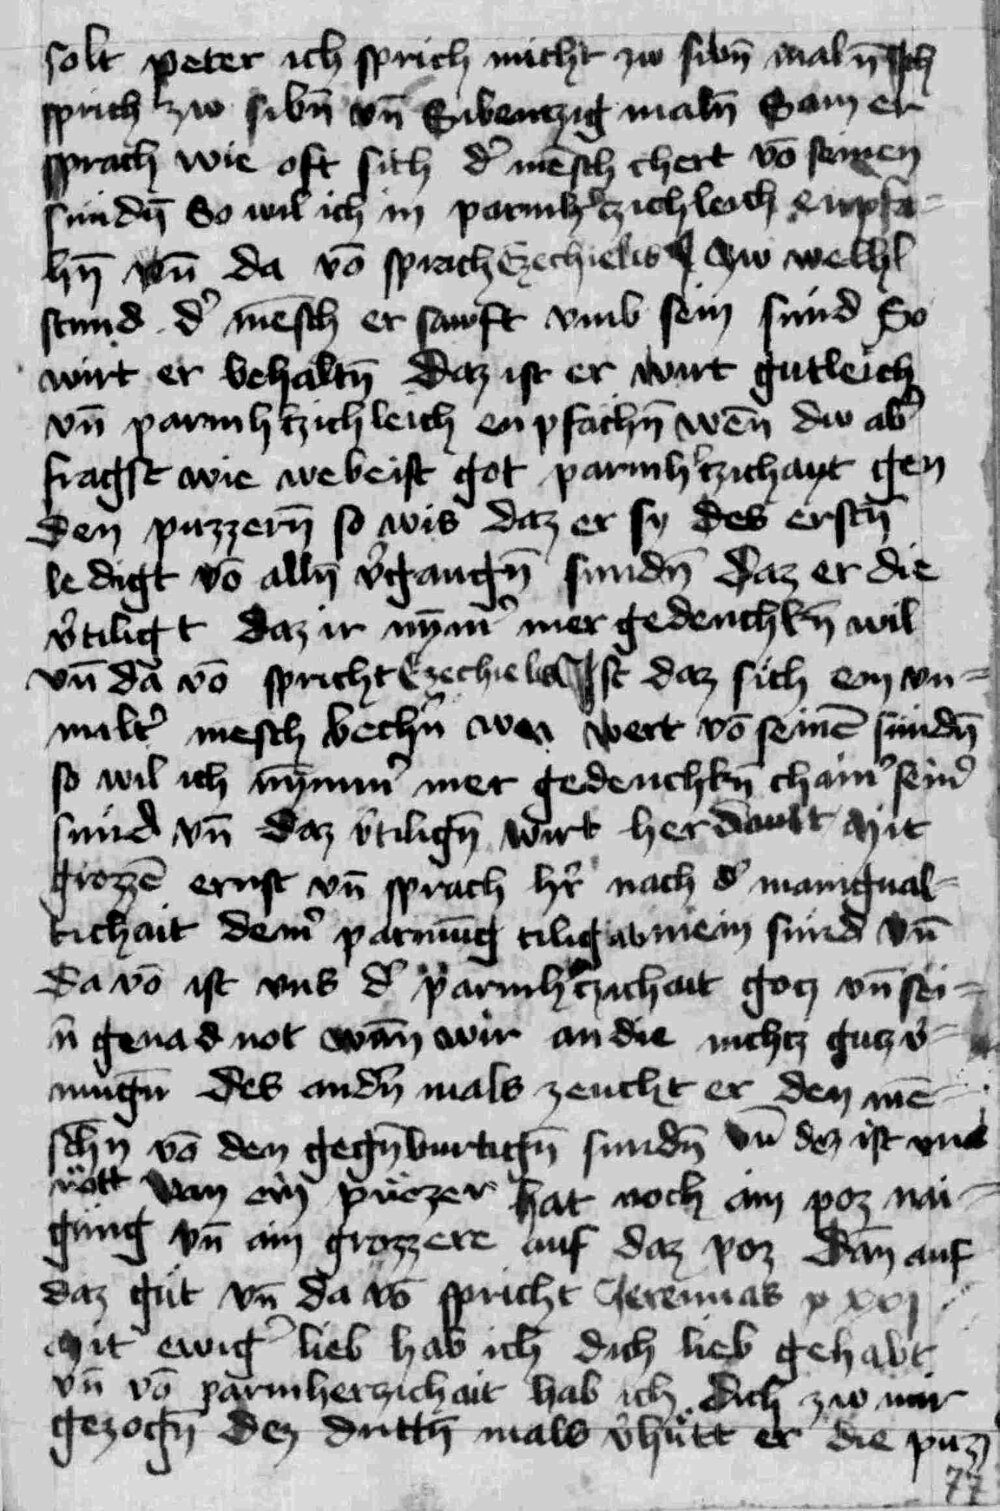 solt peter ich sprich nicht zw sibn̄ maln̄ Ich
sprich zw sibn̄ vn̄ Sibentzig maln̄ Sam er
sprach wie oft sich d' mēsch chert vō seinen
sundn̄ So wil ich in parmh'tzichleich enpfa-
hn̄ vn̄ da vō sprach Ezechielis Zw welhl
stund d' mēsch er sawft vmb sein sund So
wirt er behaltn̄ Daz ist er wirt gutleich
vn̄ parmh'tzichleich enpfachn̄ wēn dw ab'
fragst wie webeist got parmh'tzichayt gen
den puzzern̄ so wis daz er sy des erstn̄
ledigt vō alln̄ v'gangn̄ sundn̄ Daz er die
v'tiligt daz ir nȳm' mer gedenchkn̄ wil
vn̄ da vō spricht Ezechielis Ist daz sich ein vn-
milt' mesch bechn̄ wen wert vō seinē sundn̄
so wil ich nymm' mer gedenchkn̄ chain' sein'
sund vn̄ daz v'tilign̄ wirt her dauit Mit
grozzē ernst vn̄ sprach h'r nach d' manigual-
tichait dein' parmūg tilig ab mein sund vn̄
da vō ist vns d' parmh'tzichait gotz vn̄ sei-
n̄ genad not wān wir an die nichtz gutz v'-
mugn̄ des andn̄ mals zeucht er den mē-
schn̄ vō den gegn̄burtign̄ sundn̄ vn̄ dez ist vns
nott wan ein puezer hat noch ain poz nai-
gung vn̄ ain grozzere auf daz poz Dan auf
daz gut vn̄ da vō spricht Jeremias xxxj
Mit ewig' lieb hab ich dich lieb gehabt
vn̄ vō parmherzichait hab ich dich zw mir
gezogn̄ Dez drittn̄ mals v'hutt er die puz
77